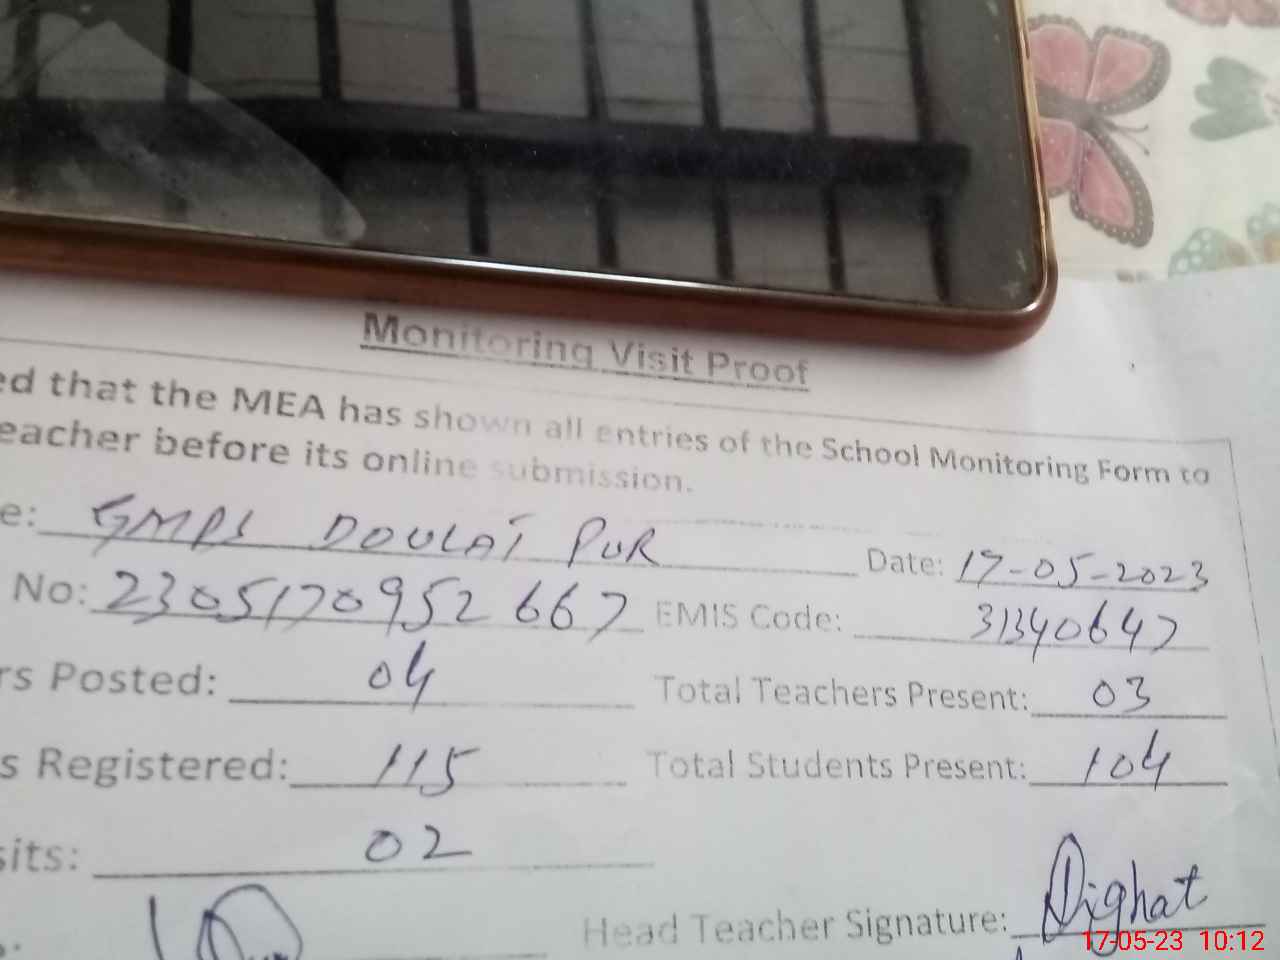 Monitoring Visit Proof
ed that the MEA has shown all entries of the School Monitoring Form to
eacher before its online submission.
e: GMPS DOULAT PUR Date: 17-05-2023
No: 2305170952667 EMIS Code: 31340647
rs Posted: 04 Total Teachers Present: 03
s Registered: 115 Total Students Present: 104
sits: 02
Head Teacher Signature:
17-05-23 10:12